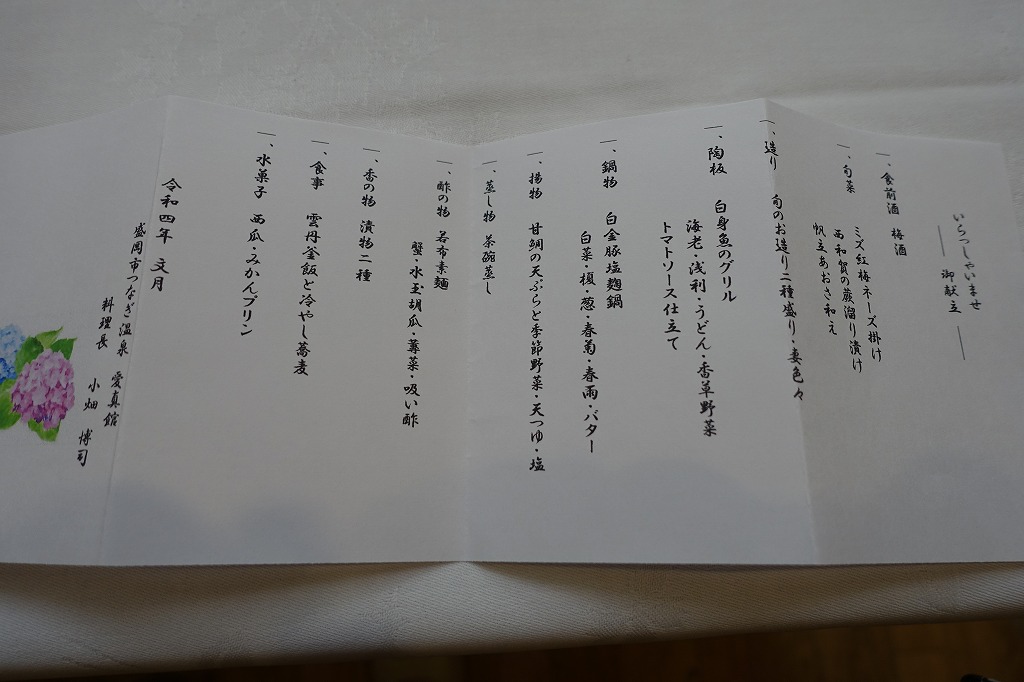 いらっしゃいませ
― 御献立 ―
一、食前酒 梅酒
一、旬菜 ミズ紅梅ネーズ掛け
西和賀の蕨溜り漬け
帆立あおさ和え
一、造り 旬のお造り二種盛り・妻色々
一、陶板 白身魚のグリル
海老・浅利・うどん・香草野菜
トマトソース仕立て
一、鍋物 白金豚塩麹鍋
白菜・榎・葱・春菊・春雨・バター
一、揚物 甘鯛の天ぷらと季節野菜・天つゆ・塩
一、蒸し物 茶碗蒸し
一、酢の物 若布素麺
蟹・水玉胡瓜・蓴菜・吸い酢
一、香の物 漬物二種
一、食事 雲丹釜飯と冷やし蕎麦
一、水菓子 西瓜・みかんプリン
令和四年 文月
盛岡市つなぎ温泉 愛真館
料理長 小畑 博司